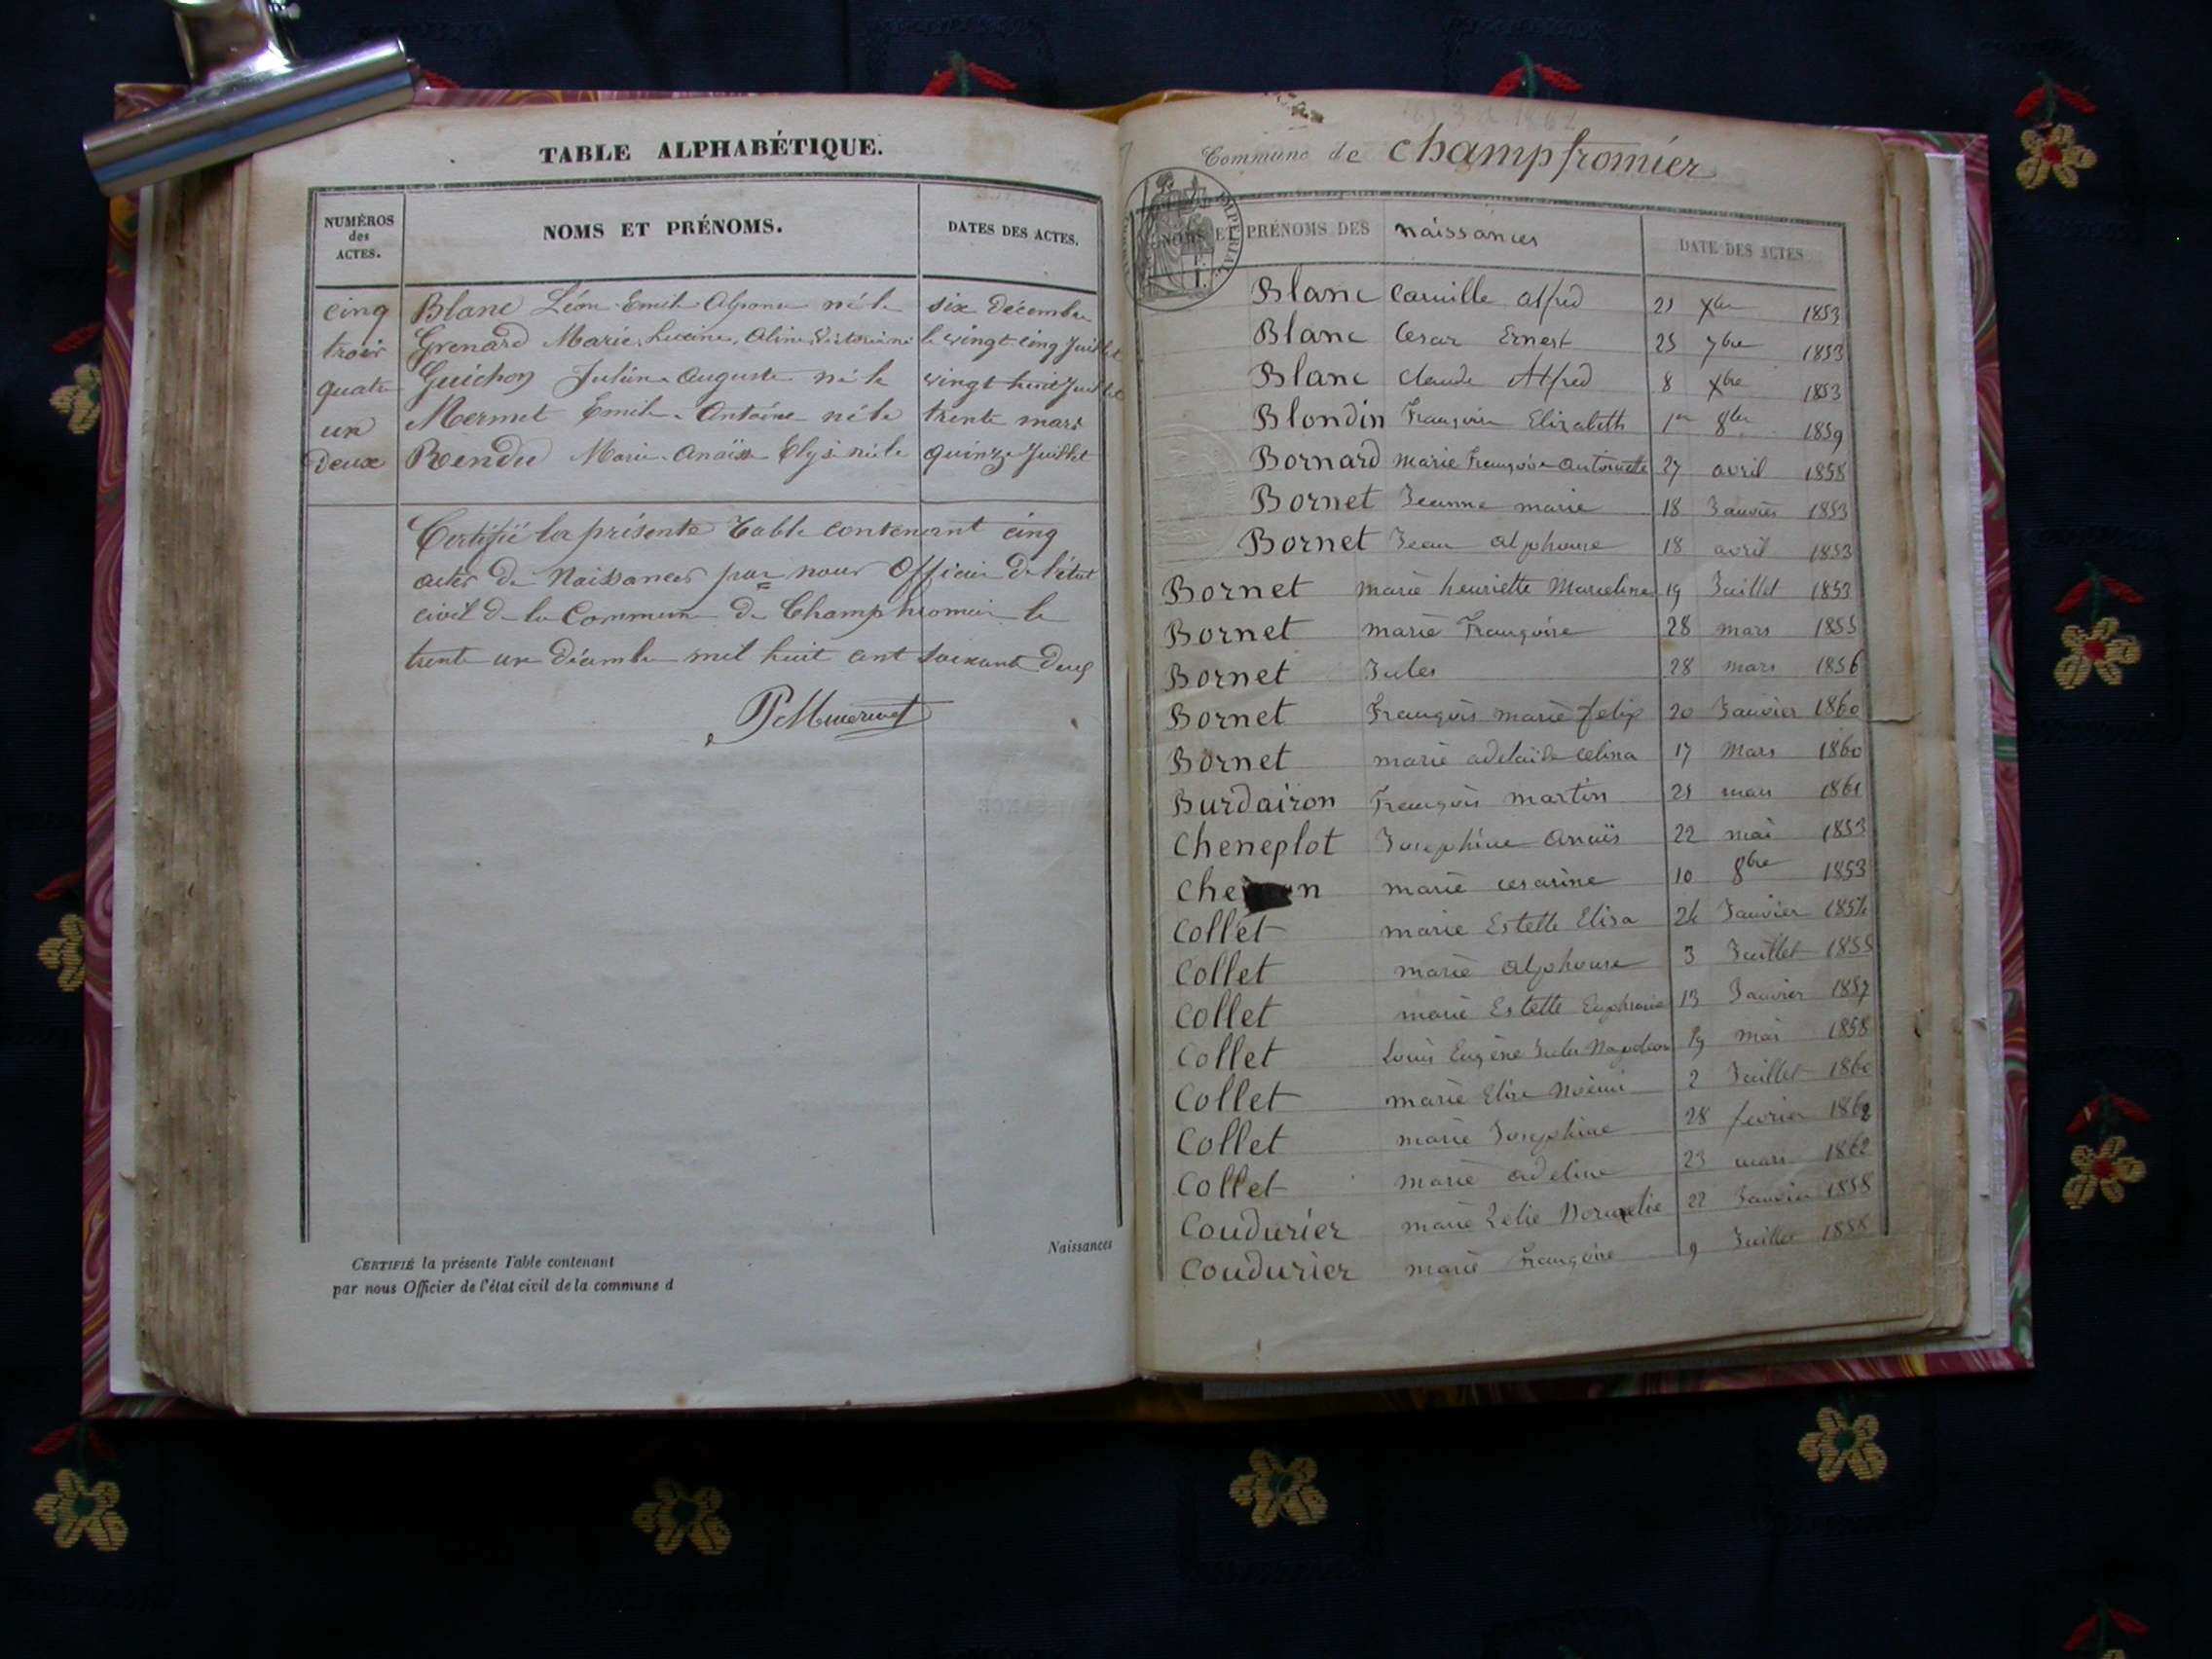 TABLE ALPHABÉTIQUE.
NUMÉROS des ACTES.
NOMS ET PRÉNOMS.
DATES DES ACTES.
cinq Blanc Léon Emile né le six Décembre
trois Grenard Marie Aline Victorine le vingt cinq Juillet
quatre Guichon Auguste né le vingt huit Juillet
un Mermet Emile Antoine né le trente mars
Deux Rendu Marie Anaïse née le quinze Juillet
Certifié la présente Table contenant cinq
actes de Naissances par nous Officier de l'état
civil de la Commune de Champfromier le
trente un décembre mil huit cent soixante deux
CERTIFIÉ la présente Table contenant
par nous Officier de l'état civil de la commune d
Naissances
1853 à 1862
Commune de Champfromier
NOMS ET PRÉNOMS DES naissances DATE DES ACTES
Blanc Camille alfred 21 Xbre 1853
Blanc Cesar Ernest 25 7bre 1853
Blanc Claude Alfred 8 Xbre 1853
Blondin Françoise Elizabeth 1er 8bre 1859
Bornard marie Françoise antoinette 27 avril 1858
Bornet Jeanne marie 18 Janvier 1853
Bornet Jean alphonse 18 avril 1853
Bornet marie henriette Marceline 19 Juillet 1853
Bornet marie Françoise 28 mars 1855
Bornet Jules 28 mars 1856
Bornet François marie felix 20 Janvier 1860
Bornet marie adelaïde celina 17 Mars 1860
Burdairon François martin 21 mars 1861
Cheneplot Josephine anaïs 22 mai 1853
Che n marie cesarine 10 8bre 1853
Collet marie Estelle Elisa 24 Janvier 1854
Collet marie alphonse 3 Juillet 1855
Collet marie Estelle Euphrasie 13 Janvier 1857
Collet Louis Eugène Jules Napoleon 19 mai 1858
Collet marie Elise Noëmi 2 Juillet 1860
Collet marie Josephine 28 fevrier 1862
Collet marie adeline 23 mars 1862
Coudurier marie Zelie 22 Janvier 1858
Coudurier marie Françoise 9 Juillet 1858